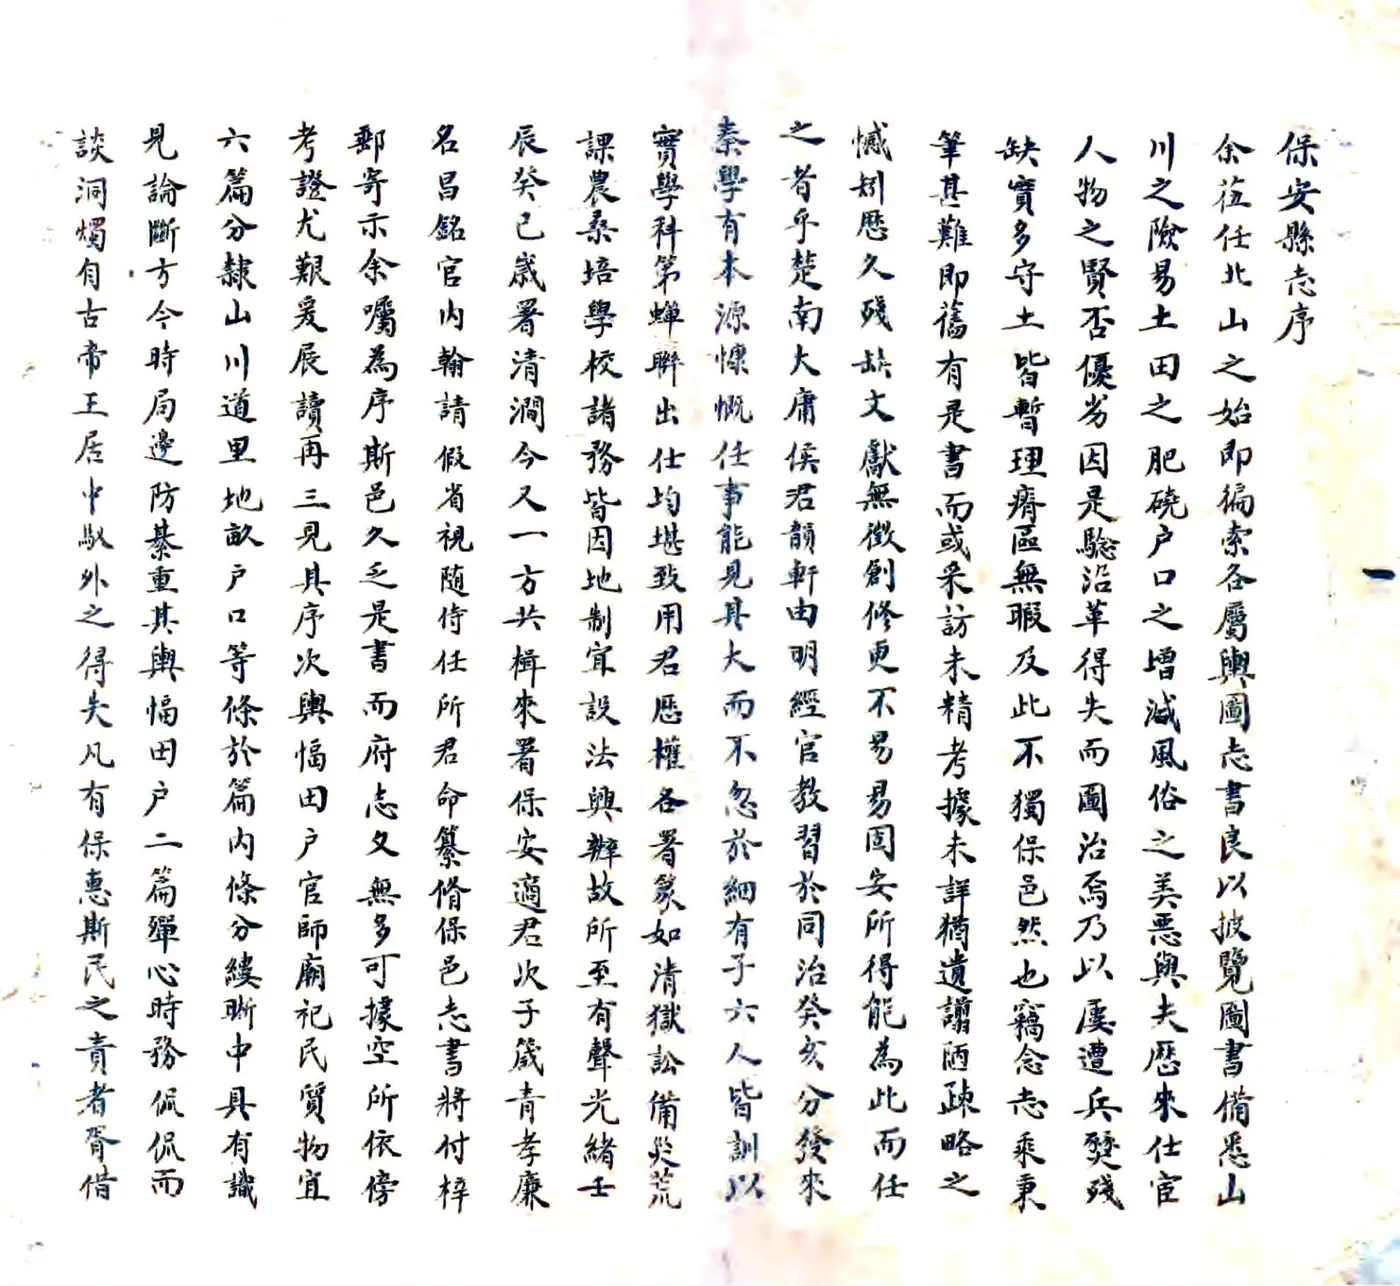 保安縣志序
余莅任北山之始即徧索各屬輿圖志書良以披覽圖書備悉山
川之險易土田之肥磽户口之增減風俗之美惡與夫歷來仕宦
人物之賢否優劣因是騐沿革得失而圖治焉乃以屢遭兵燹殘
缺實多守土皆暫理瘠區無暇及此不獨保邑然也竊念志乘秉
筆甚難即舊有是書而或采訪未精考據未詳猶遺譾陋疎略之
憾矧歷久殘缺文獻無徵創修更不易易固安所得能為此而任
之者乎楚南大庸侯君韻軒由明經官教習於同治癸亥分發來
秦學有本源慷慨任事能見其大而不忽於細有子六人皆訓以
實學科第蟬聯出仕均堪致用君歷權各署篆如清獄訟備災荒
課農桑培學校諸務皆因地制宜設法興辦故所至有聲光緒壬
辰癸已歲署清澗今又一方共楫來署保安適君次子箴青孝廉
名昌銘官内翰請假省視随侍任所君命纂脩保邑志書將付梓
郵寄示余囑為序斯邑久乏是書而府志又無多可據空所依傍
考證尤艱爰展讀再三見其序次輿幅田户官師廟祀民質物宜
六篇分隸山川道里地畝户口等條於篇内條分縷晰中具有識
見論斷方今時局邊防綦重其輿幅田户二篇殫心時務侃侃而
談洞燭自古帝王居中馭外之得失凡有保惠斯民之責者胥借